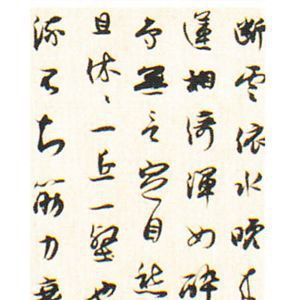 斷雲依水晚来
蓮相倚渾如醉
鳥無言定自愁
且休〻一丘一壑也
流不知筋力衰